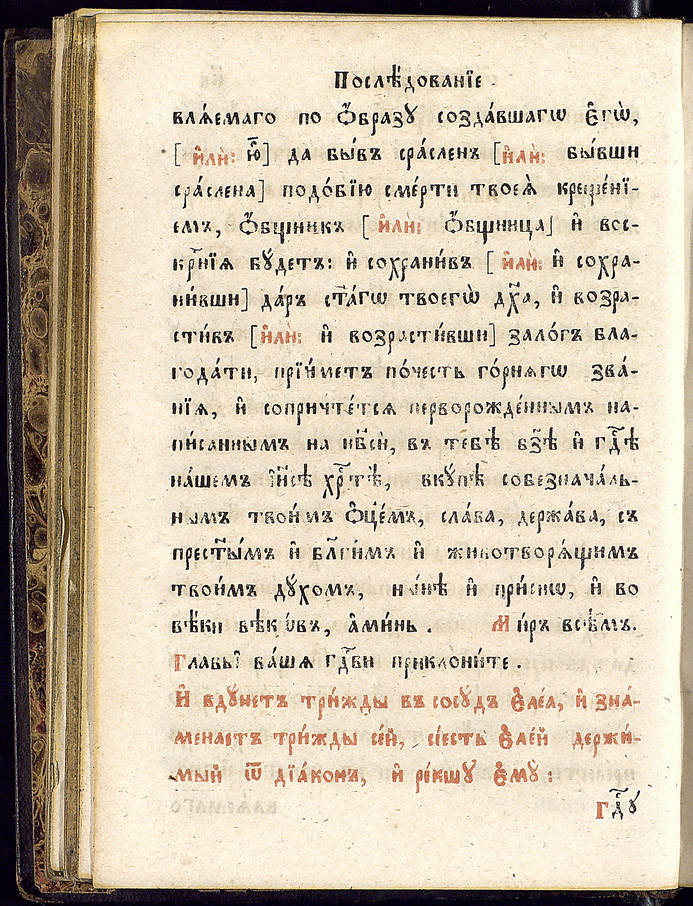 Послѣ́дованїе.
влѧ́емаго по ѻ҆́бразꙋ созда́вшагѡ є҆гѡ̀,
[и҆лѝ: ю҆̀] да бы́въ сра́сленъ [и҆лѝ: бы́вши
сра́слена] подо́бїю сме́рти твоеѧ̀ креще́нї-
емъ, ѻ҆́бщникъ [и҆лѝ: ѻ҆́бщница] и҆ вос-
крⷭ҇нїѧ бꙋ́детъ: и҆ сохрани́въ [и҆лѝ: и҆ сохра-
ни́вши] да́ръ ст҃а́гѡ твоегѡ̀ дх҃а, и҆ возра-
сти́въ [и҆лѝ: и҆ возрасти́вши] зало́гъ бла-
года́ти, прїи́метъ по́честь го́рнѧгѡ зва́-
нїѧ, и҆ сопричте́тсѧ перворожде́ннымъ на-
пи́саннымъ на нб҃сѝ, въ тебѣ̀ бз҃ѣ и҆ гдⷭ҇ѣ
на́шемъ і҆и҃сѣ хрⷭ҇тѣ̀, вкꙋ́пѣ собезнача́ль-
нымъ твои́мъ ѻ҆ц҃е́мъ, сла́ва, держа́ва, съ
прест҃ы́мъ и҆ бл҃ги́мъ и҆ животворѧ́щимъ
твои́мъ дꙋ́хомъ, ны́нѣ и҆ при́снѡ, и҆ во
вѣ́ки вѣкѡ́въ, а҆ми́нь. Ми́ръ всѣ̑мъ.
Главы̑ ва́шѧ гдⷭ҇ви приклони́те.
И҆ вдꙋ́нетъ три́жды въ сосꙋ́дъ є҆ле́а, и҆ зна́-
менаетъ три́жды се́й, сїе́сть є҆ле́й держи́-
мый ѿ дїа́кона, и҆ ре́кшꙋ є҆мꙋ̀:
Гдⷭ҇ꙋ